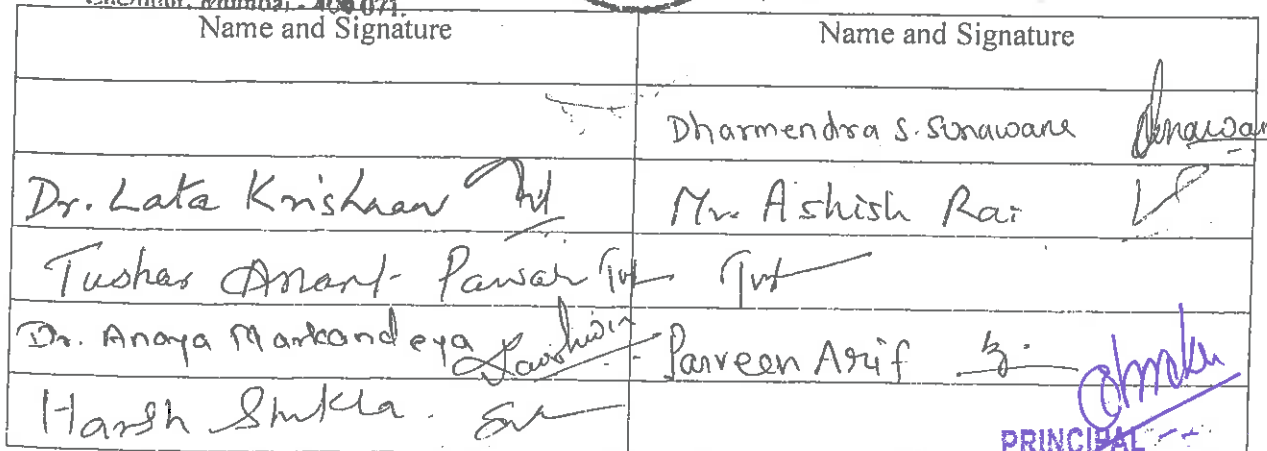 Chembur, Mumbai - 400 071.
Name and Signature Name and Signature
Dharmendra S. Sonawane
Dr. Lata Krishnan Mr. Ashish Rai
Tushar Anant Pawar
Dr. Anaya Markandeya Parveen Arif
Harsh Shukla.
PRINCIPAL